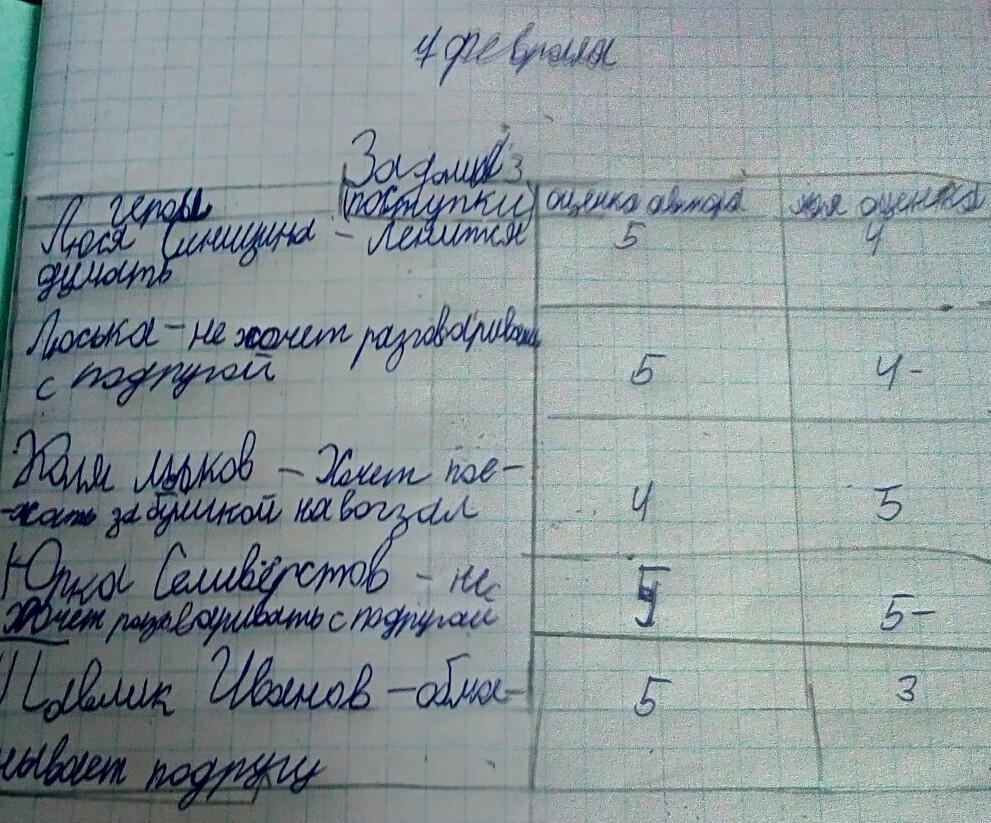 4 февраля
Задание 3
герои (поступки) оценка автора моя оценка
Люся Синицина - Ленится 5 4
думать
Люська - не хочет разговаривать
с подругой 5 4-
Коля Лыков - Хочет пое-
-хать за булкой на вогзал 4 5
Юрка Селивёрстов - не
хочет разговаривать с подругай 5-
Павлик Иванов - обма- 5 3
нывает подругу